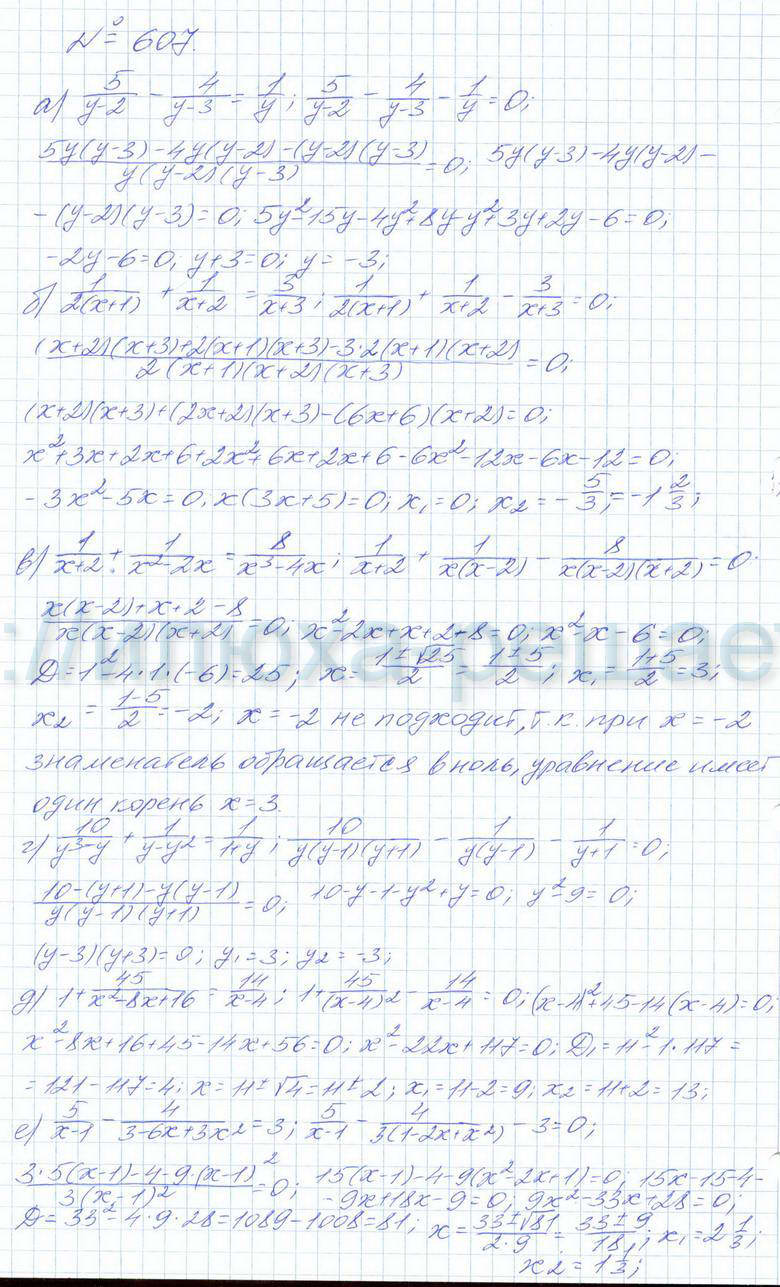 № 607.
а) 5/(y-2) - 4/(y-3) = 1/y; 5/(y-2) - 4/(y-3) - 1/y = 0;
(5y(y-3)-4y(y-2)-(y-2)(y-3))/(y(y-2)(y-3)) = 0; 5y(y-3)-4y(y-2)-
-(y-2)(y-3)=0; 5y²-15y-4y²+8y-y²+3y+2y-6=0;
-2y-6=0; y+3=0; y=-3;
б) 1/(2(x+1)) + 1/(x+2) = 3/(x+3); 1/(2(x+1)) + 1/(x+2) - 3/(x+3) = 0;
((x+2)(x+3)+2(x+1)(x+3)-3·2(x+1)(x+2))/(2(x+1)(x+2)(x+3)) = 0;
(x+2)(x+3)+(2x+2)(x+3)-(6x+6)(x+2)=0;
x²+3x+2x+6+2x²+6x+2x+6-6x²-12x-6x-12=0;
-3x²-5x=0. x(3x+5)=0; x₁=0; x₂=-5/3;=-1 2/3;
в) 1/(x+2) + 1/(x²-2x) = 8/(x³-4x); 1/(x+2) + 1/(x(x-2)) - 8/(x(x-2)(x+2)) = 0.
(x(x-2)+x+2-8)/(x(x-2)(x+2)) = 0; x²-2x+x+2-8=0; x²-x-6=0;
://илюха-решает
D=1²-4·1·(-6)=25; x=(1±√25)/2=(1±5)/2; x₁=(1+5)/2=3;
x₂=(1-5)/2=-2; x=-2 не подходит, т.к. при x=-2
знаменатель обращается в ноль, уравнение имеет
один корень x=3.
г) 10/(y³-y) + 1/(y-y²) = 1/(1+y); 10/(y(y-1)(y+1)) - 1/(y(y-1)) - 1/(y+1) = 0;
(10-(y+1)-y(y-1))/(y(y-1)(y+1)) = 0; 10-y-1-y²+y=0; y²-9=0;
(y-3)(y+3)=0; y₁=3; y₂=-3;
д) 1+45/(x²-8x+16)=14/(x-4); 1+45/(x-4)²-14/(x-4)=0; (x-4)²+45-14(x-4)=0;
x²-8x+16+45-14x+56=0; x²-22x+117=0; D₁=11²-1·117=
=121-117=4; x=11±√4=11±2; x₁=11-2=9; x₂=11+2=13;
е) 5/(x-1) - 4/(3-6x+3x²)=3; 5/(x-1) - 4/(3(1-2x+x²)) - 3=0;
(3·5(x-1)-4-9·(x-1)²)/(3(x-1)²)=0; 15(x-1)-4-9(x²-2x+1)=0; 15x-15-4-
-9x+18x-9=0; 9x²-33x+28=0;
D=33²-4·9·28=1089-1008=81; x=(33±√81)/(2·9)=(33±9)/18; x₁=2 1/3;
x₂=1 1/3;